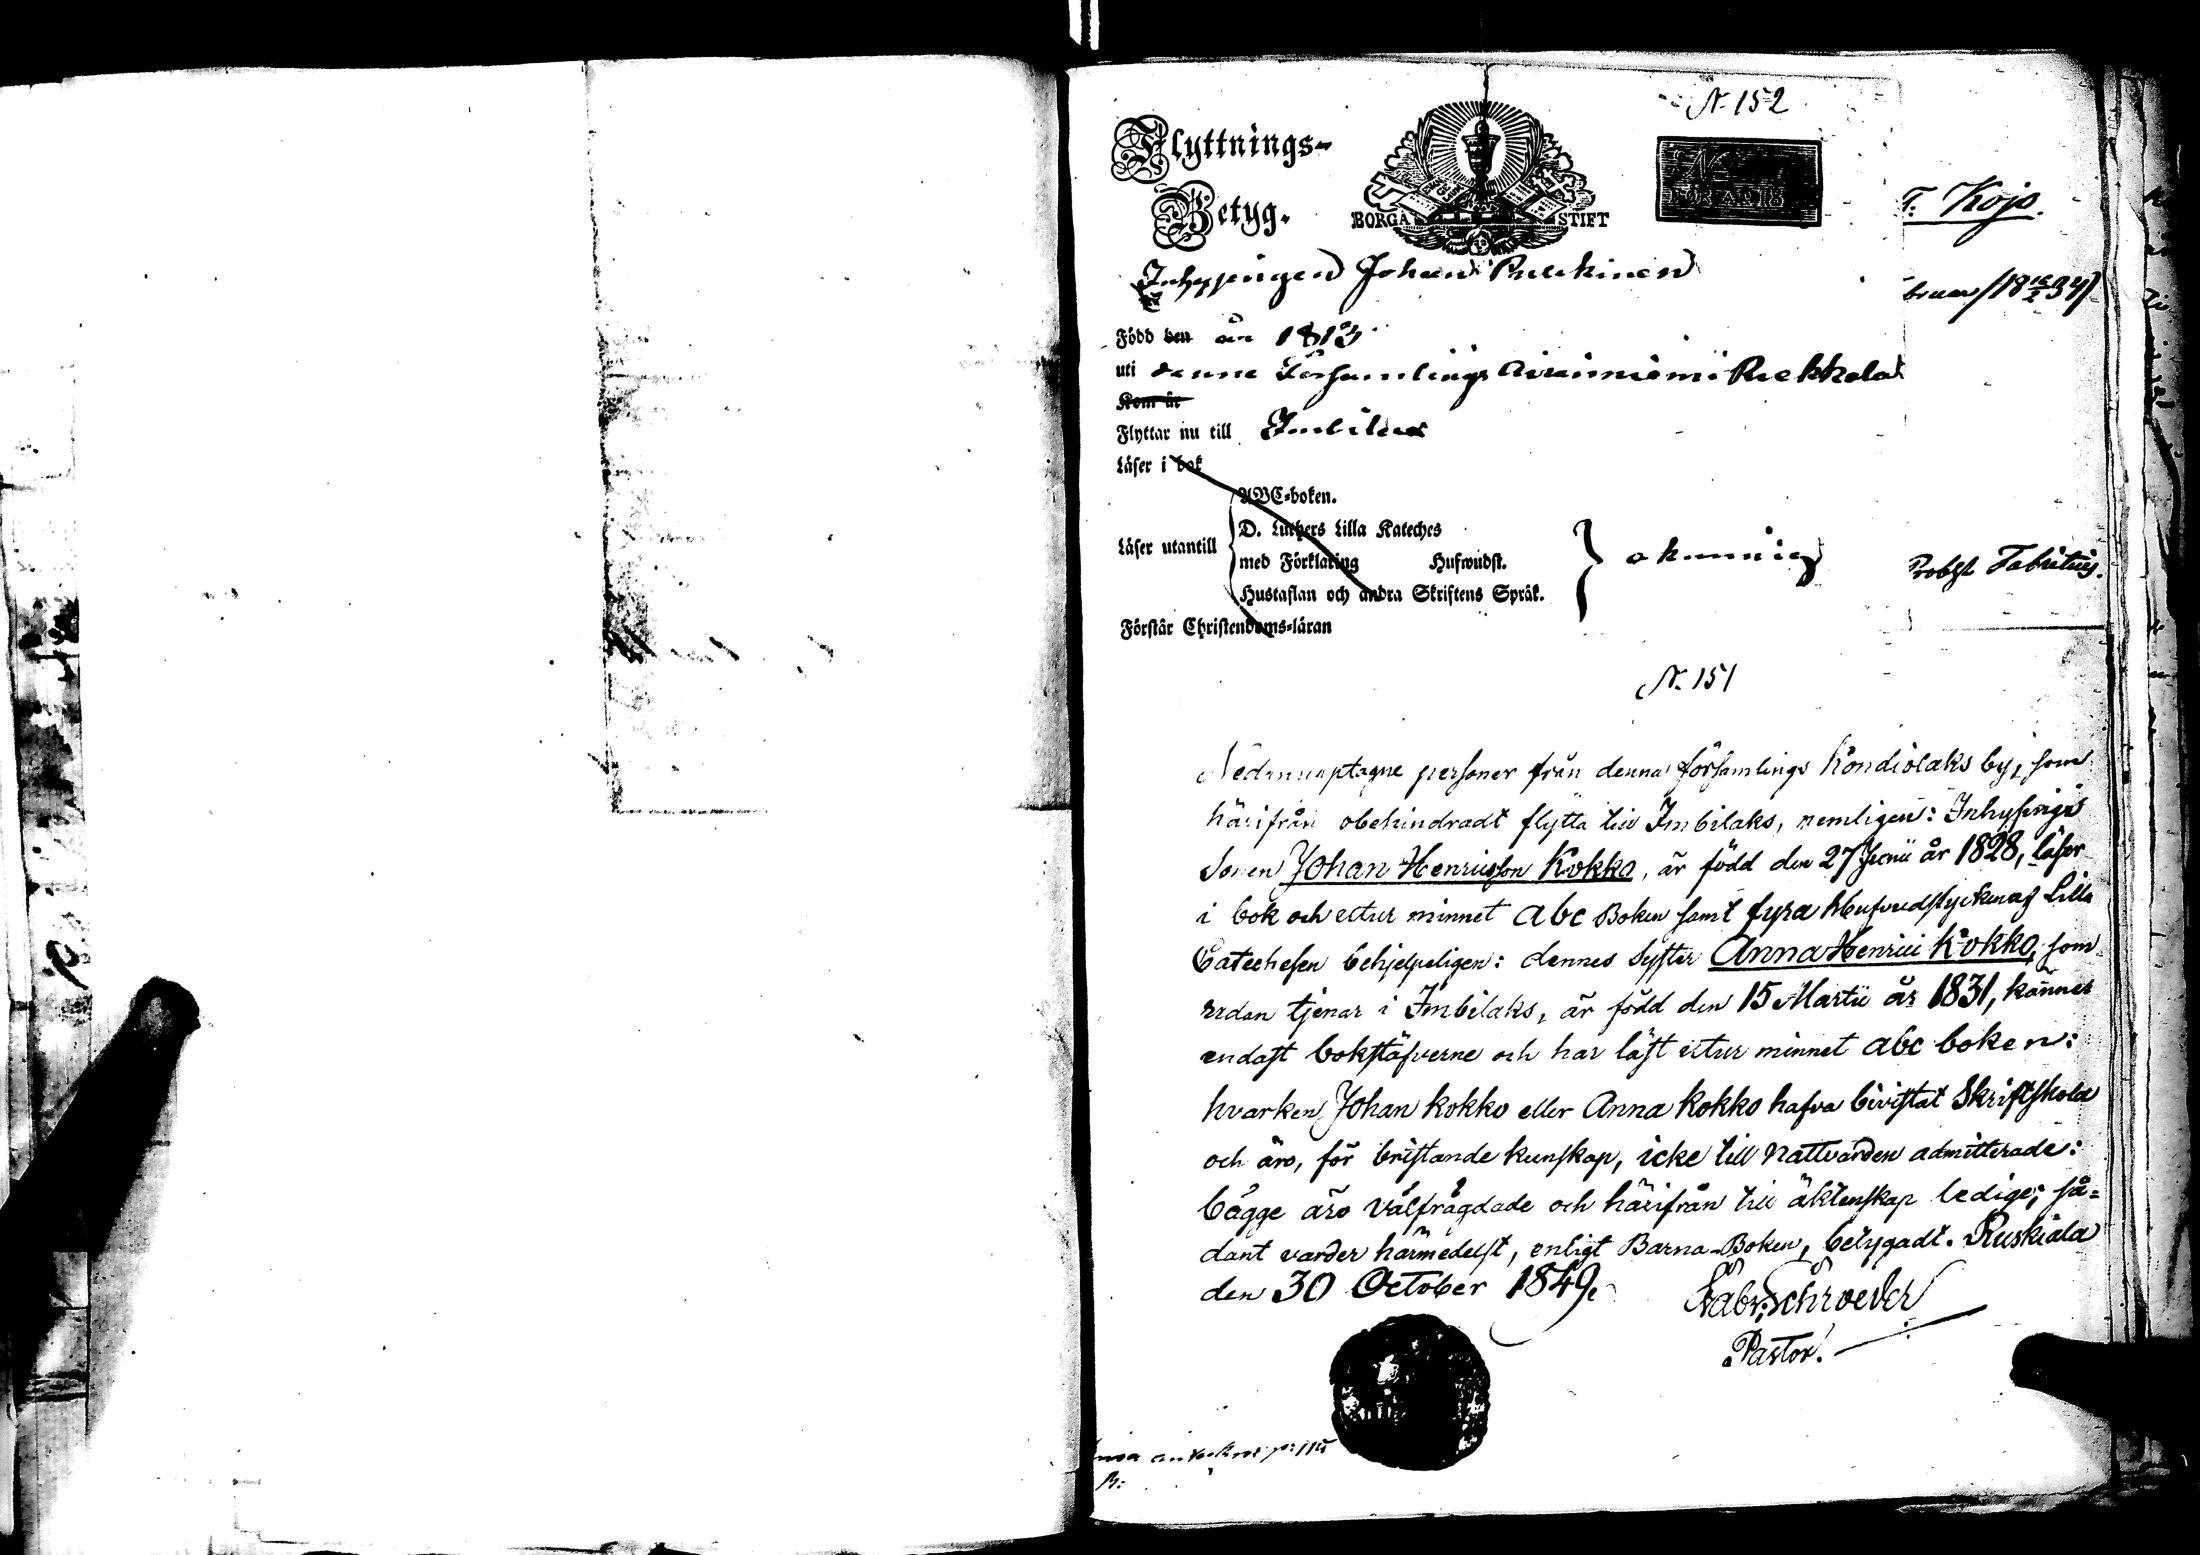 N. 152
Flyttnings-
Betyg.
BORGÅ STIFT
FÖR ÅR 18
T. Kojo.
Inhysingen Johan Puckinen
Född den år 1813
uti denne Församlings Airanniemi Rekkola
Kom år
Flyttar nu till Imbilax
Läser i bok
ABC-boken.
D. Luthers Lilla Kateches
Läser utantill
med Förklaring Hufwudst.
Hustaflan och andra Skriftens Språk.
okunnig
Probst Fabritius.
Förstår Christendoms-läran
N. 151
Nedanupptagne personer från denna församlings Kondiolaks by, som
härifrån obehindradt flytta till Imbilaks, nemligen: Inhysings
Sonen Johan Henricsson Kokko, är född den 27 Junii år 1828, läser
i bok och utur minnet abc Boken samt fyra Hufvudstycken af Lilla
Catechesen behjelpeligen: dennes Syster Anna Henrici Kokko, som
redan tjenar i Imbilaks, är född den 15 Martii år 1831, känner
endast bokstäfverne och har läst utur minnet abc boken:
hvarken Johan Kokko eller Anna Kokko hafva bivistat Skriftskola
och äro, för bristande kunskap, icke till Nattvarden admitterade:
bägge äro välfrägdade och härifrån till äktenskap ledige; så-
dant varder härmedelst, enligt Barna-Boken, betygadt. Ruskiala
den 30 October 1849.
Gabr. Schroeder
Pastor.